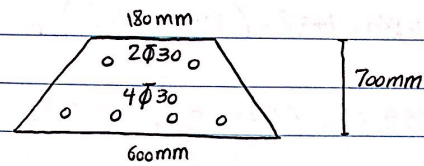 180mm
2Φ30
4Φ30
700mm
600mm